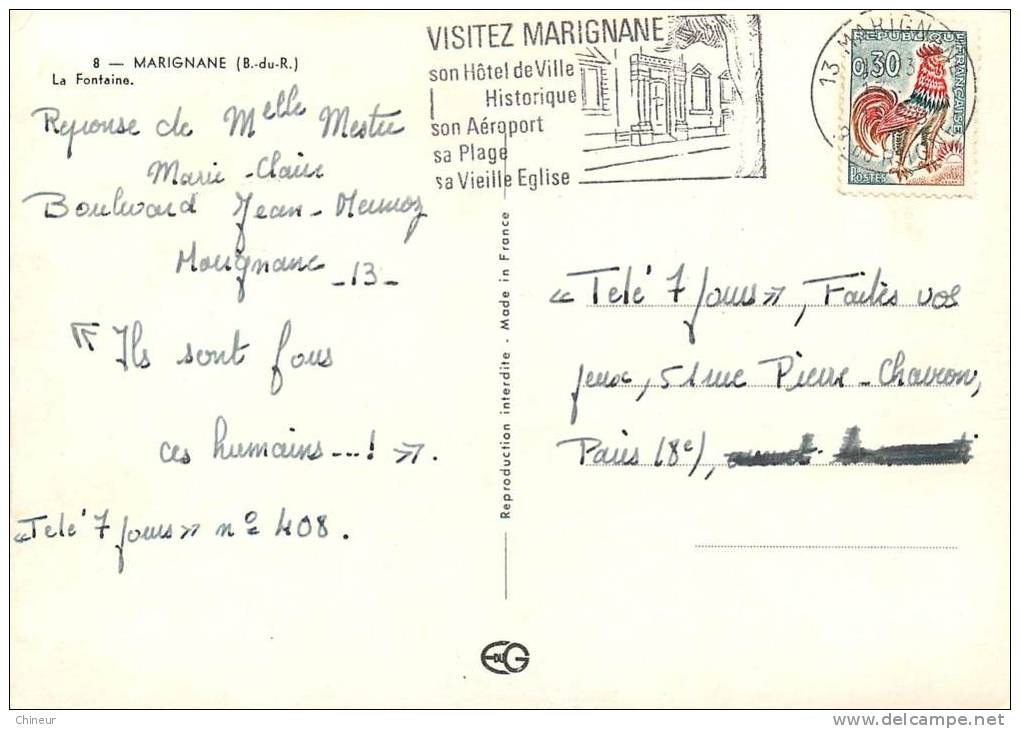 8 — MARIGNANE (B.-du-R.)
La Fontaine.
Reponse de Melle Mestre
Marie-Claire
Boulevard Jean-Mermoz
Marignane -13-
« Ils sont fous
ces humains---! ».
«Telé 7 Jours» no 408.
VISITEZ MARIGNANE
son Hôtel de Ville
Historique
son Aéroport
sa Plage
sa Vieille Eglise
13 MARIGNANE
REPUBLIQUE FRANÇAISE
0,30
POSTES
Reproduction interdite - Made in France
« Telé 7 Jours», Faites vos
jeux, 51 rue Pierre-Charron,
Paris (8e),
EDUG
Chineur
delcampe.net